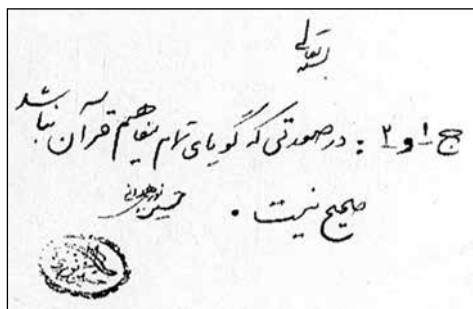 بسمه تعالی
ج ۱ و ۲ : در صورتی که گویای تمام مفاهیم قرآن نباشد
صحیح نیست .
حسین نوری همدانی